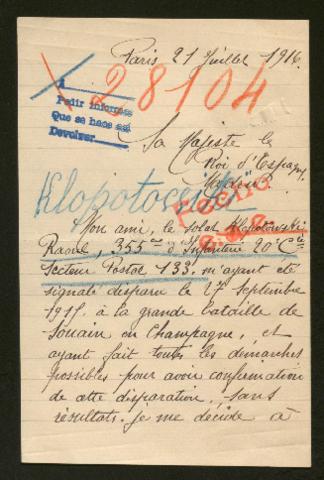 Paris 21 Juillet 1916.
28104
A
Pedir informes
Que se haga así
Devolver
Sa Majesté le
Roi d'Espagne
Madrid
Klopotowski
Fecho
Mon ami, le soldat Klopotowski
Raoul, 355ème d'Infanterie 20e Cie
Secteur Postal 133. m'ayant été
signalé disparu le 27 Septembre
1915. à la grande bataille de
Souain en Champagne, et
ayant fait toutes les démarches
possibles pour avoir confirmation
de cette disparation, sans
résultats. je me décide à